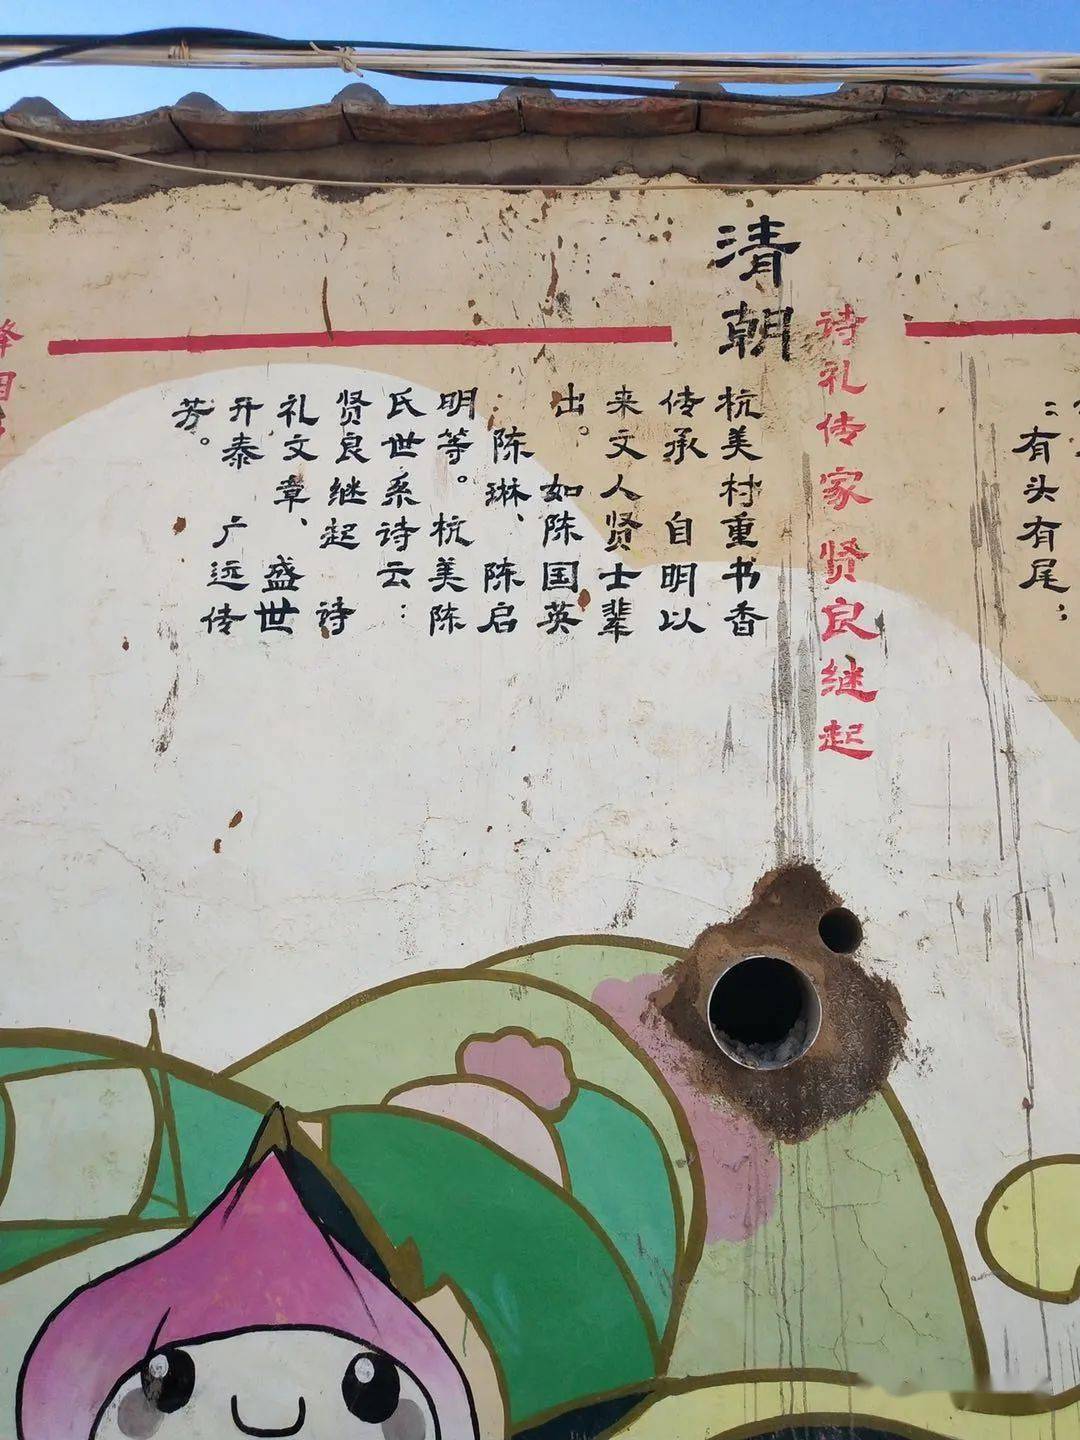 ：有头有尾；
诗礼传家 贤良继起
清朝
杭美村重书香
传承 自明以
来文人贤士辈
出。 如陈国英
、陈琳、陈启
明等。杭美陈
氏世系诗云：
贤良继起 诗
礼文章、盛世
开泰 广远传
芳。